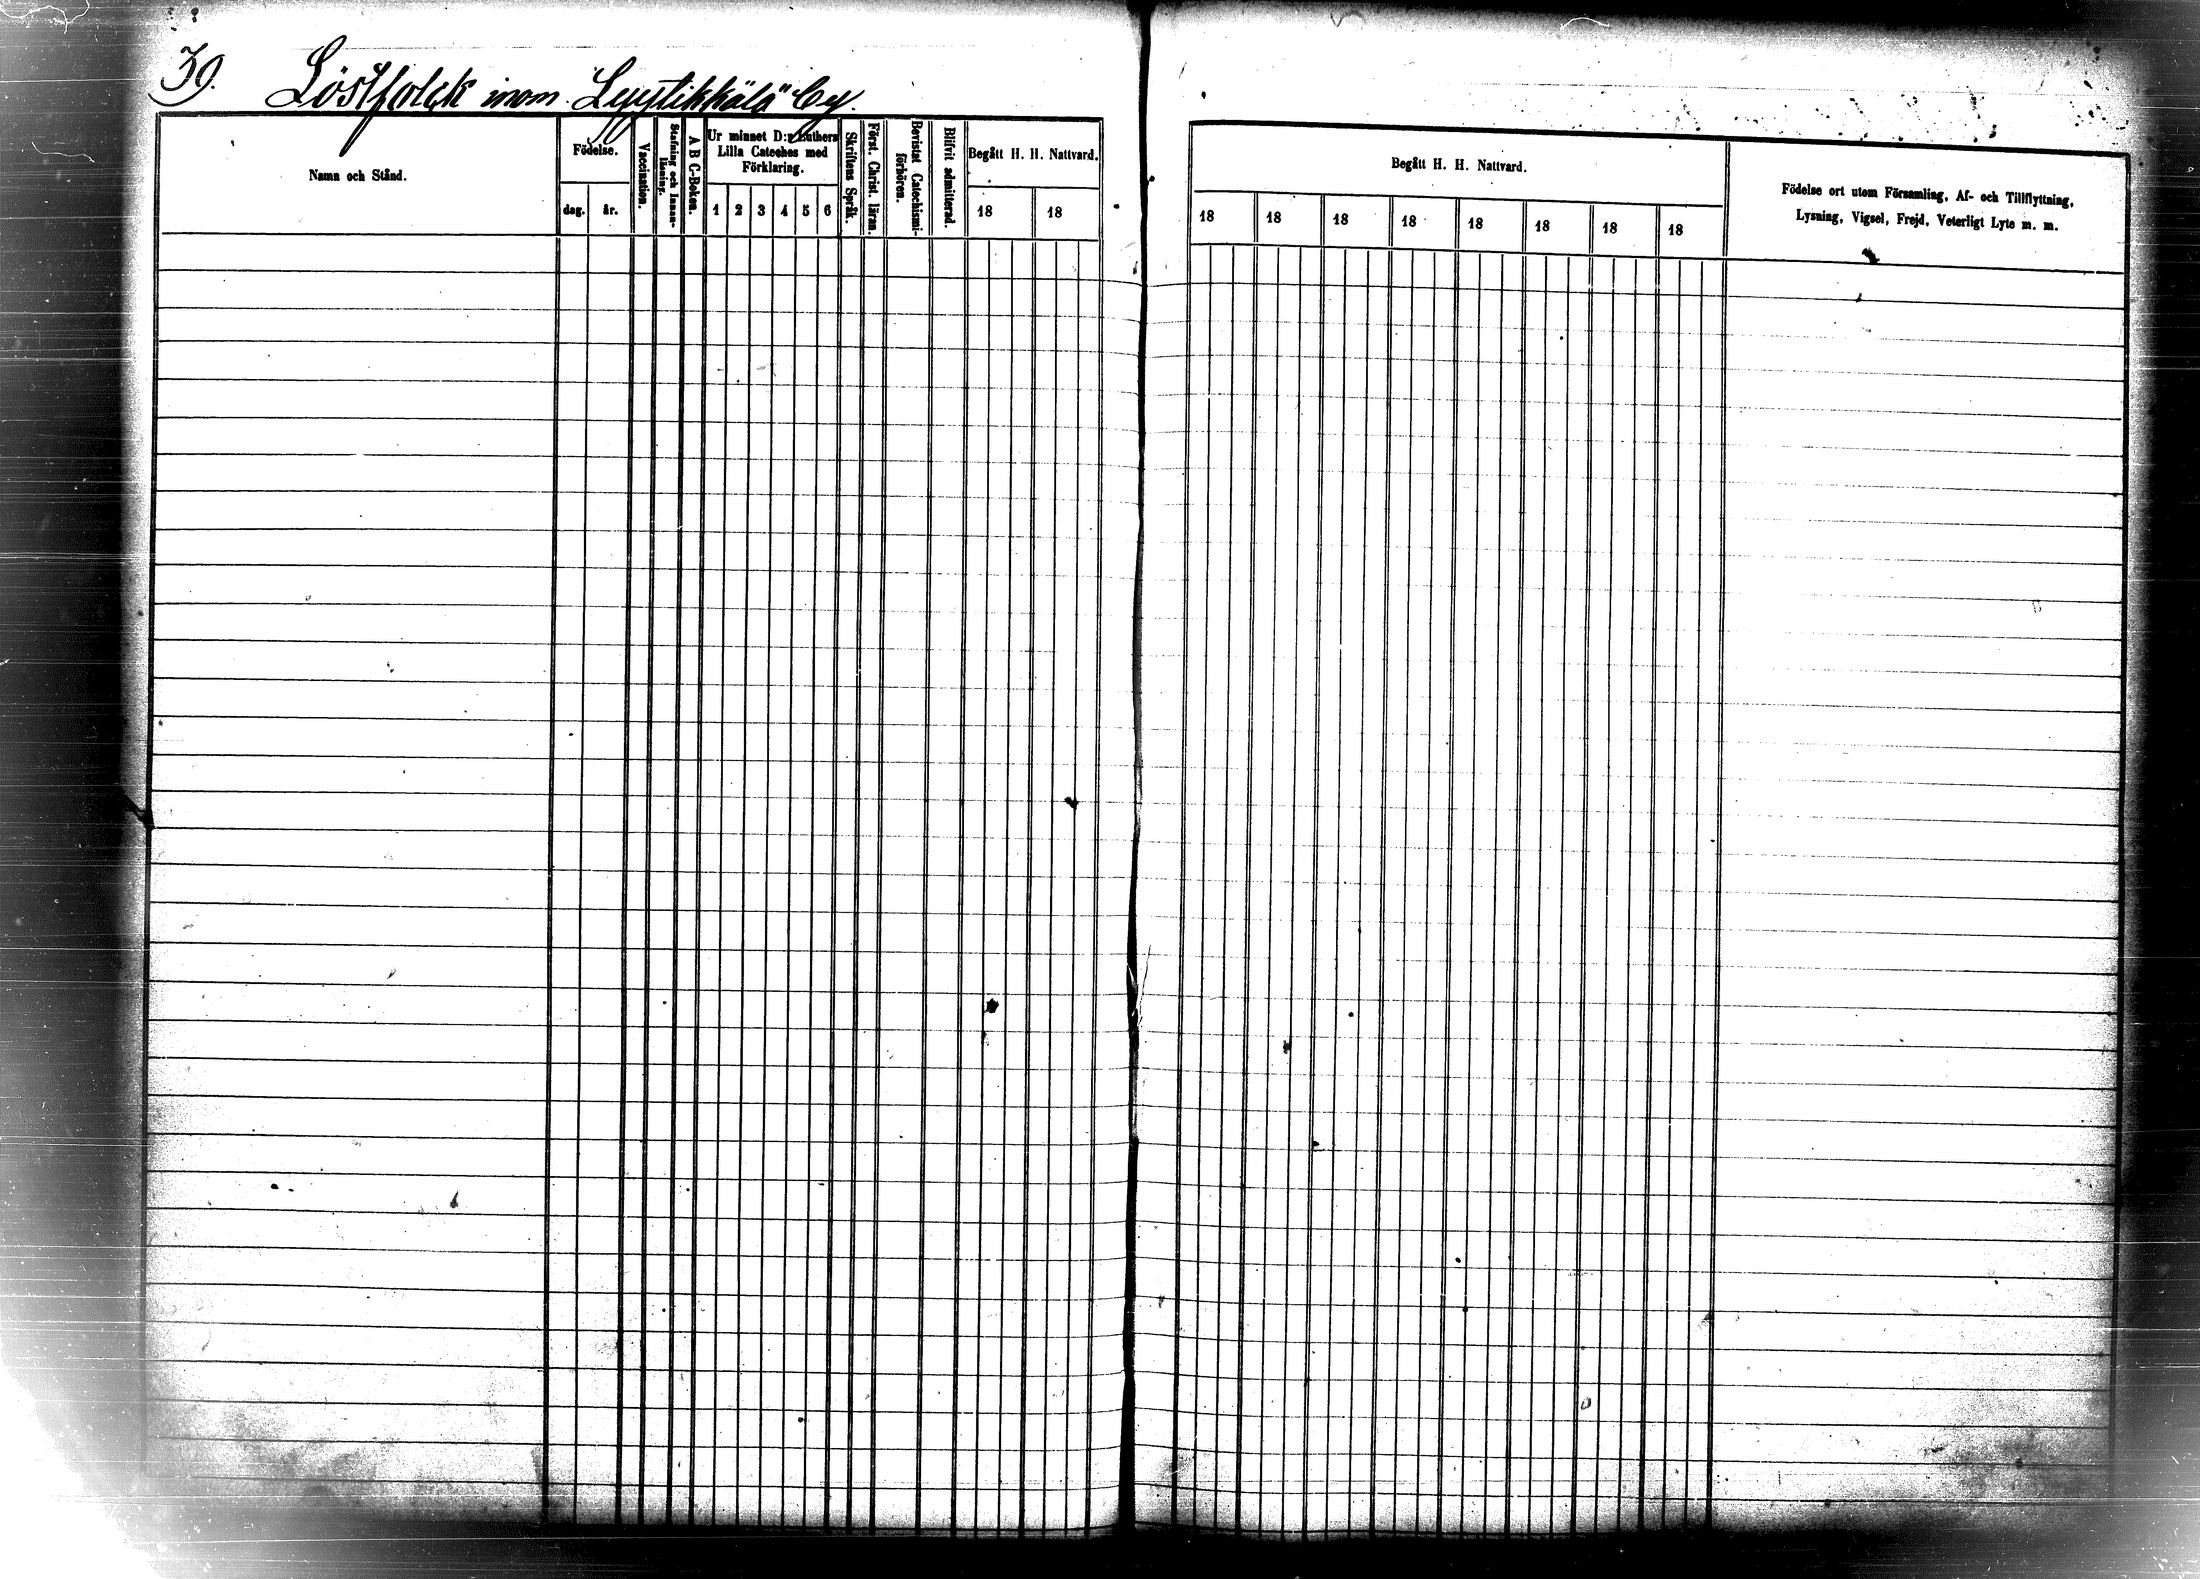 39.
Löstfolck inom "Lyytikkälä" by.
Namn och Stånd.
Födelse.
dag. år.
Vaccination.
Stafning och Innan-läsning.
A B C-Boken.
Ur minnet D:r Luthers
Lilla Cateches med
Förklaring.
1 2 3 4 5 6
Skriftens Språk.
Först. Christ. läran.
Bevistat Catechismi-förhören.
Blifvit admitterad.
Begått H. H. Nattvard.
18 18
Begått H. H. Nattvard.
18 18 18 18 18 18 18 18
Födelse ort utom Församling, Af- och Tillflyttning,
Lysning, Vigsel, Frejd, Veterligt Lyte m. m.